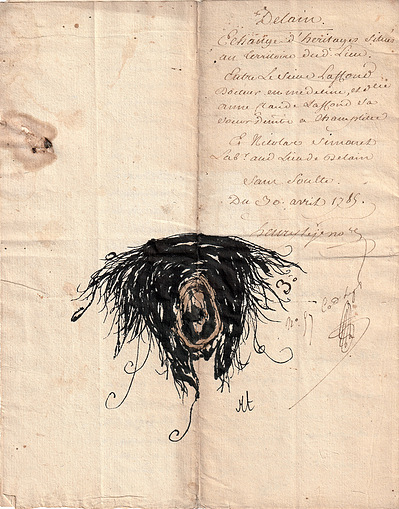 Delain.
Echange d'heritages Situés
au territoire dud. Lieu.
Entre Le Sieur Laffond
Docteur en medecine, et dlle
anne Claude Laffond Sa
Soeur
Et Nicolas Simonet
Lab.r aud Lieu de Delain
Sans Soulte.
Du 30. avril 1785.
3°
Nt